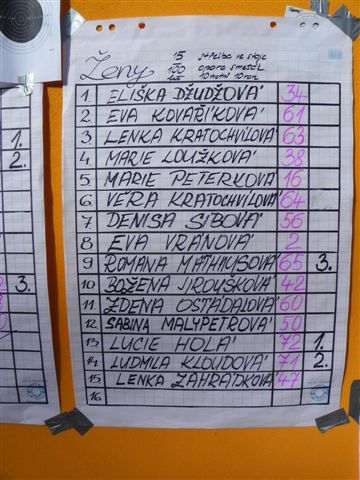 Ženy
15 střelba ve stoje
100 opora smetál
10 metrů 10 ran
1. ELIŠKA DŽUDŽOVÁ 34
2 EVA KOVAŘÍKOVÁ 61
3 LENKA KRATOCHVÍLOVÁ 63
4 MARIE LOUŽKOVÁ 38
5. MARIE PETERKOVÁ 16
6. VĚRA KRATOCHVÍLOVÁ 64
7. DENISA SIBOVÁ 56
8 EVA VRÁNOVÁ 2
9 ROMANA MATHIUSOVÁ 65 3.
10 BOŽENA JIROUŠKOVÁ 42
11. ZDENA OSTÁDALOVÁ 60
12. SABINA MALYPETROVÁ 50
13. LUCIE HOLÁ 72 1.
14. LUDMILA KLOUDOVÁ 71 2.
15. LENKA ZAHRÁDKOVÁ 47
16.
1.
2.
3.